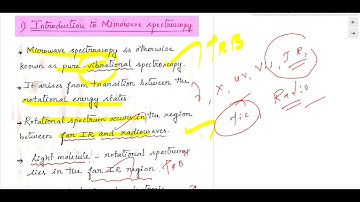 1) Introduction to Microwave spectroscopy
→ Microwave spectroscopy is otherwize
known as pure vibrational spectroscopy.
→ It arises from transition between the
rotational energy states
→ Rotational spectrum occurs in the region
between far IR and radiowaves.
→ Light molecule - rotational spectrum
lies in the far IR region
→ R/B
X, UV, V, IR,
Mic
Radio